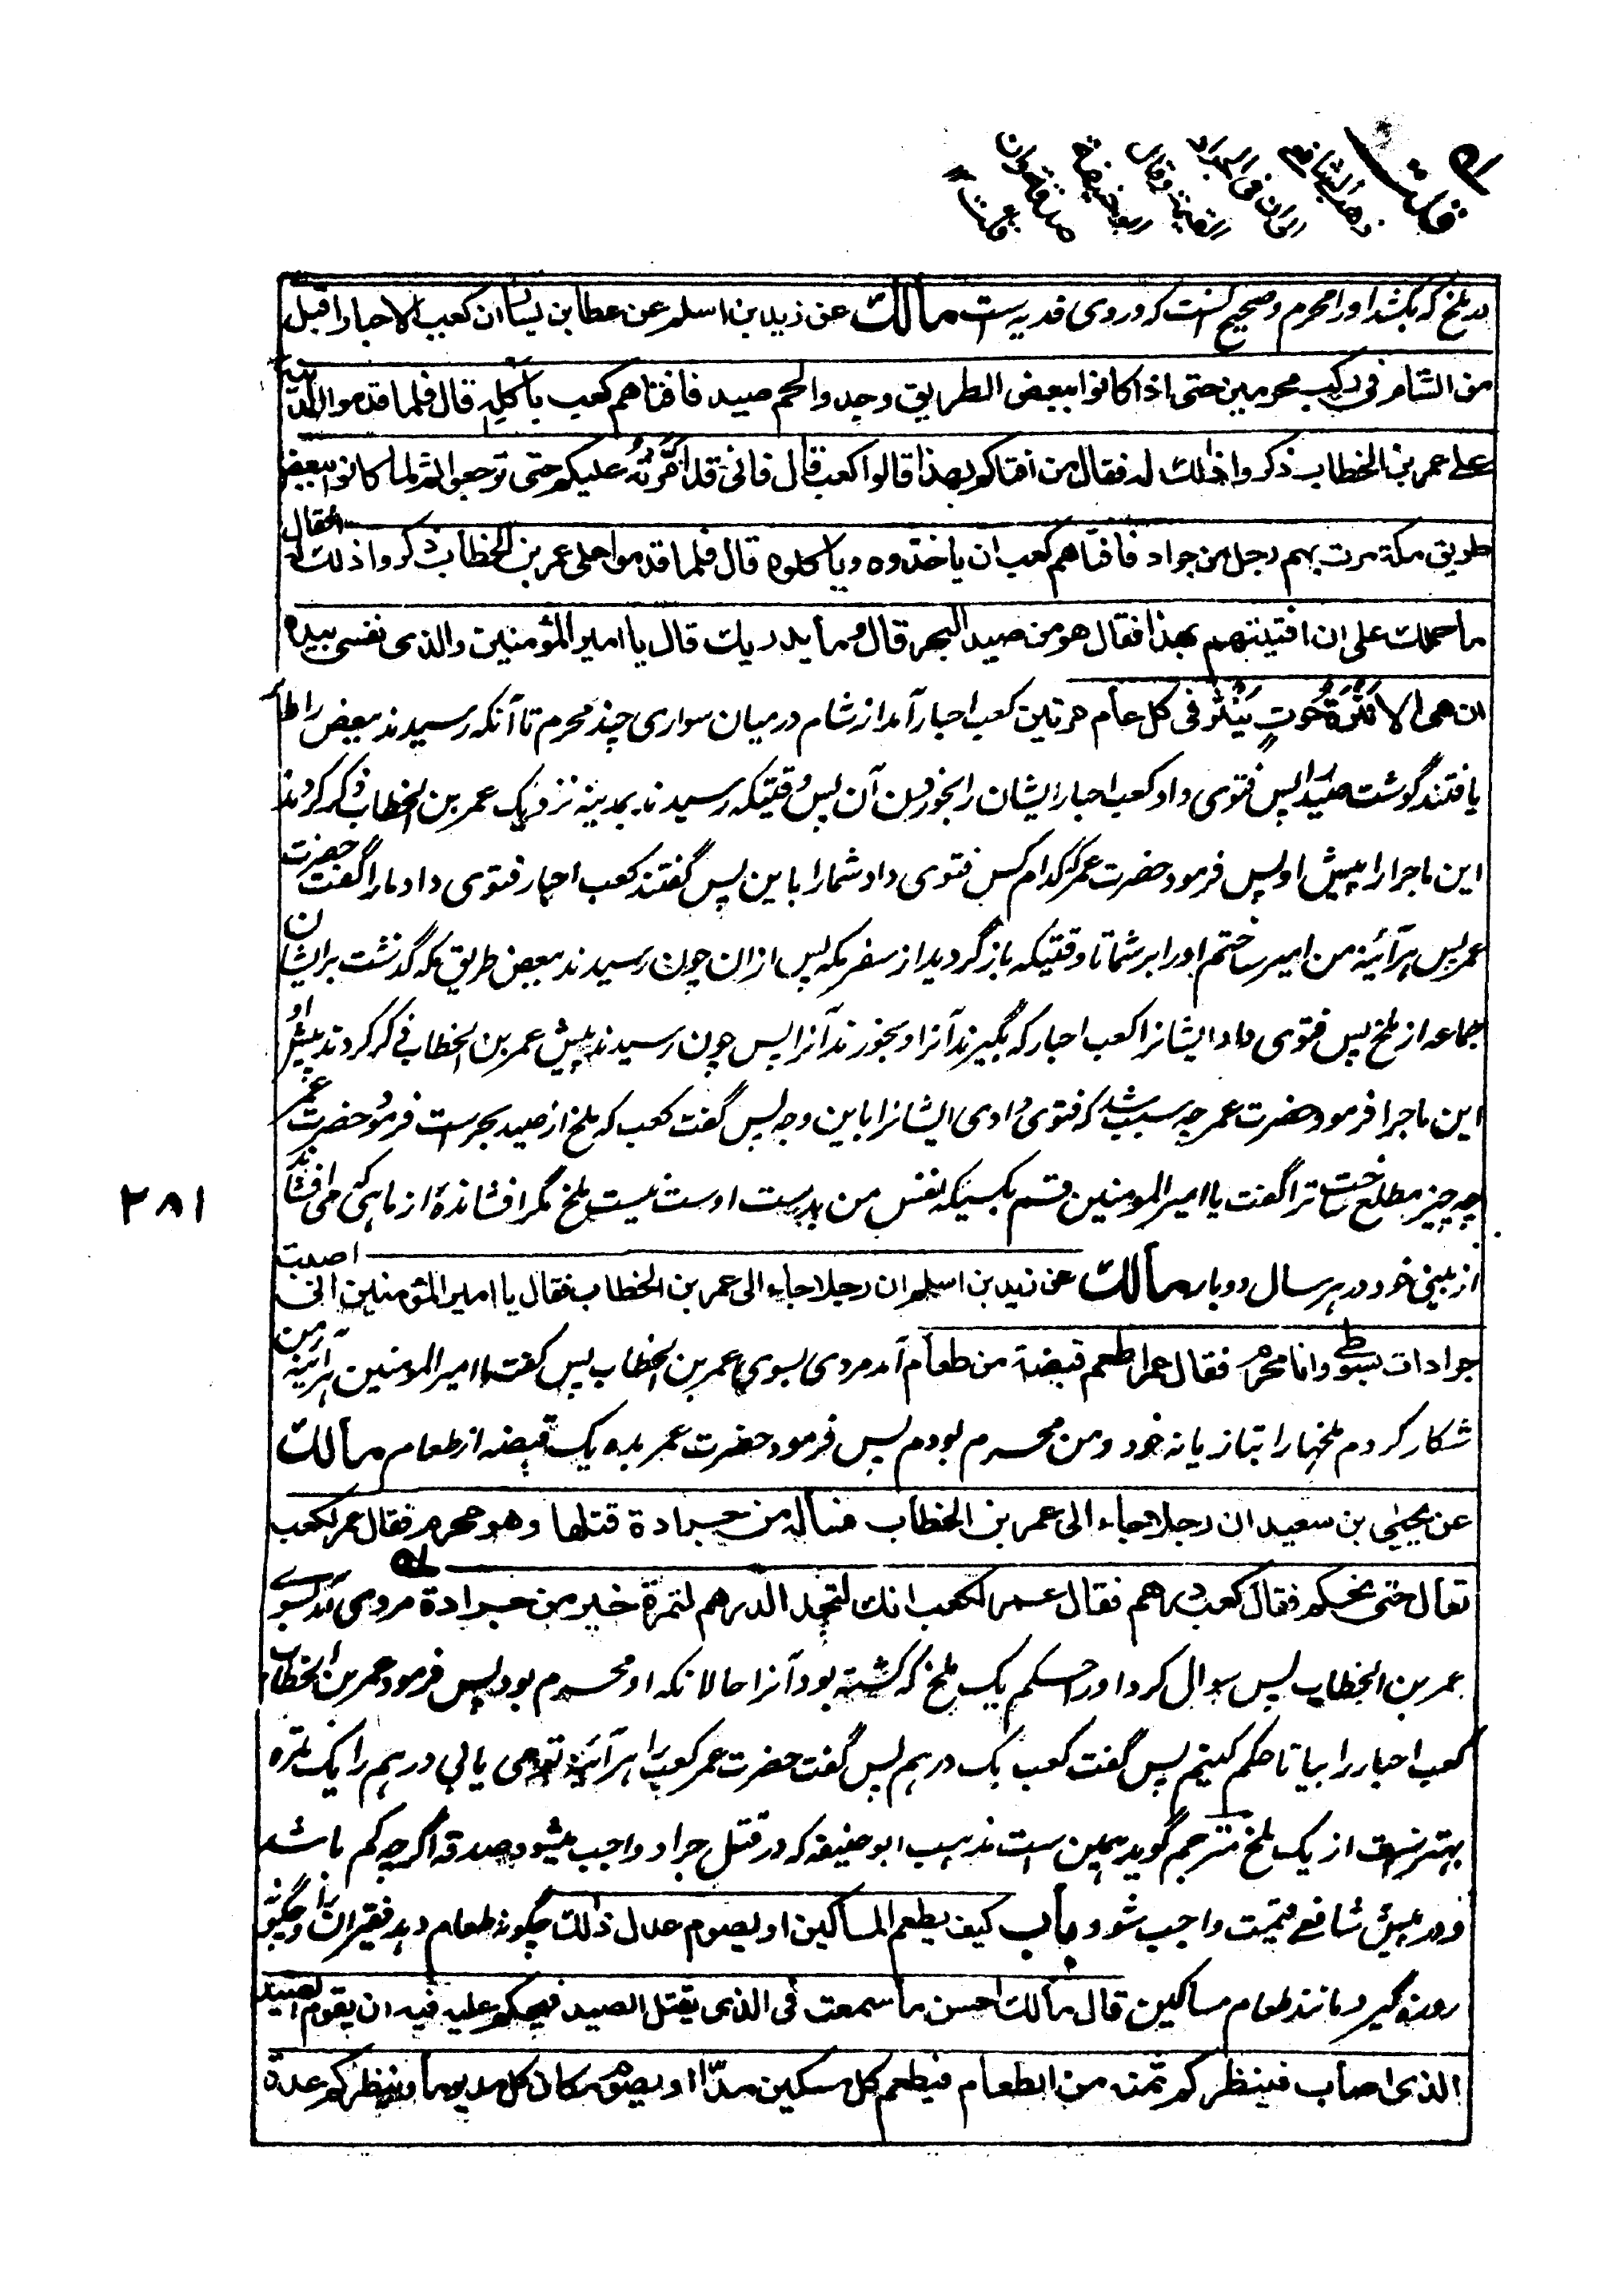 قلت
در ملخ که بکشد او را محرم و صحیح آنست که در وی فدیه است مالك عن زید بن اسلم عن عطا بن یسار ان کعب الاحبار اقبل
من الشام فی رکب محرمین حتی اذا کانوا ببعض الطریق وجدوا لحم صید فافتاهم کعب باکله قال فلما قدموا المدینة
علی عمر بن الخطاب ذکروا ذلك له فقال من افتاکم بهذا قالوا کعب قال فانی قد امّرتُه علیکم حتی ترجعوا ثم لما کانوا ببعض
طریق مکة مرت بهم رجل من جراد فافتاهم کعب ان یاخذوه ویاکلوه قال فلما قدموا علی عمر بن الخطاب ذکروا ذلك له فقال
ما حملك علی ان افتیتهم بهذا فقال هو من صید البحر قال وما یدریك قال یا امیر المؤمنین والذی نفسی بیده
ان هی الا نَثْرَةُ حُوتٍ یَنْثُرُ فی کل عام مرتین کعب احبار آمد از شام در میان سواری چند محرم تا آنکه رسیدند ببعض راه
یافتند گوشت صید را پس فتوی داد کعب احبار ایشان را بخوردن آن پس وقتیکه رسیدند بمدینه نزدیک عمر بن الخطاب ذکر کردند
این ماجرا را پیش او پس فرمود حضرت عمر که کدام کس فتوی داد شما را باین پس گفتند کعب احبار فتوی داد ما را گفت حضرت
عمر پس هرآئینه من امیر ساختم او را بر شما تا وقتیکه باز گردید از سفر مکه پس ازان چون رسیدند ببعض طریق مکه گذشت بر ایشان
جماعه از ملخ پس فتوی داد ایشانرا کعب احبار که بگیرند آنرا و بخورند آنرا پس چون رسیدند پیش عمر بن الخطاب ذکر کردند پیش او
این ماجرا فرمود حضرت عمر چه سبب شد که فتوی دادی ایشانرا باین وجه پس گفت کعب که ملخ از صید بحر است فرمود حضرت عمر
چه چیز مطلع ساخت ترا گفت یا امیر المومنین قسم بکسیکه نفس من بدست اوست نیست ملخ مگر افشاندهٔ از ماهی که می افشاند
از بینی خود در هر سال دو بار مالك عن زید بن اسلم ان رجلا جاء الی عمر بن الخطاب فقال یا امیر المؤمنین انی اصبت
جرادات بسوطی وانا محرم فقال عمر اطعم قبضة من طعام آمد مردی بسوی عمر بن الخطاب پس گفت یا امیر المومنین هرآئینه من
شکار کردم ملخها را بتازیانه خود و من محرم بودم پس فرمود حضرت عمر بده یک قبضه از طعام مالك
عن یحیی بن سعید ان رجلا جاء الی عمر بن الخطاب فسأله من جرادة قتلها وهو محرم فقال عمر لکعب
تعال حتی نحکم فقال کعب درهم فقال عمر لکعب انك لتجد الدرهم لتمرة خیر من جرادة مردی آمد بسوی
عمر بن الخطاب پس سوال کرد او را حکم یک ملخ که کشته بود آنرا حالانکه او محرم بود پس فرمود عمر بن الخطاب
کعب احبار را بیا تا حکم کنیم پس گفت کعب یک درهم پس گفت حضرت عمر کعب را هرآئینه تو می یابی درهم را یک تمره
بهتر است از یک ملخ مترجم گوید همین ست مذهب ابو حنیفه که در قتل جراد واجب میشود صدقه اگرچه کم باشد
و در پیش شافعی قیمت واجب شود باب کیف یطعم المساکین او یصوم عدل ذلك چگونه طعام دهد فقیران را و چگونه
روزه گیرد مانند طعام مساکین قال مالك احسن ما سمعت فی الذی یقتل الصید فیحکم علیه فیه ان یقوم الصید
الذی اصاب فینظر کم ثمنه من الطعام فیطعم کل مسکین مدّا او یصوم مکان کل مد یوما وینظر کم عدة
٢٨١